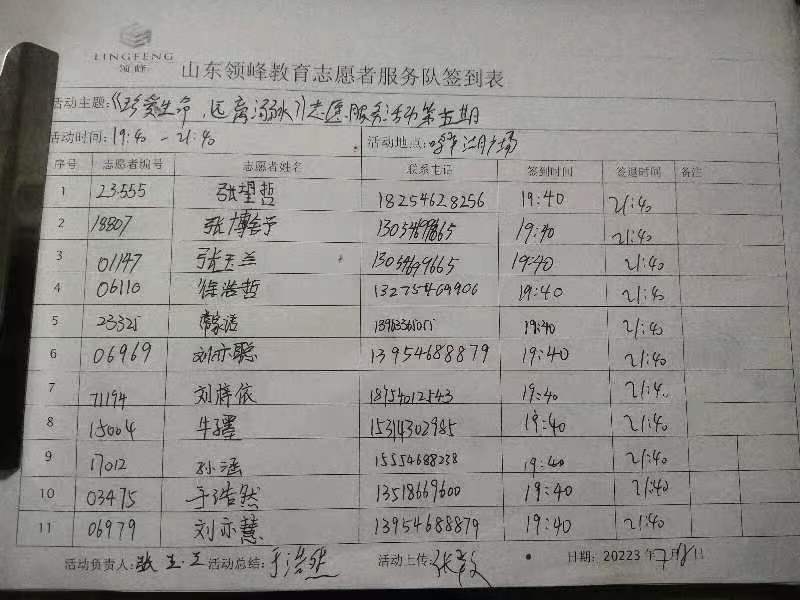 LINGFENG
领峰
山东领峰教育志愿者服务队签到表
活动主题:《珍爱生命,远离溺水》志愿服务活动第五期
活动时间: 19:40 - 21:40 活动地点: 广场
序号 志愿者编号 志愿者姓名 联系电话 签到时间 签退时间 备注
1 23555 张望哲 18254628256 19:40 21:40
2 18807 张博 19:40 21:40
3 01147 张玉兰 13054699665 19:40 21:40
4 06110 徐浩哲 13275469906 19:40 21:40
5 23325 19:40 21:40
6 06969 刘亦聪 13954688879 19:40 21:40
7 71194 刘梓依 18954012543 19:40 21:40
8 15004 牛墨 15314302985 19:40 21:40
9 17012 孙涵 15554688238 19:40 21:40
10 03475 于浩然 13518669600 19:40 21:40
11 06979 刘亦慧 13954688879 19:40 21:40
活动负责人: 张玉 活动总结: 于浩然 活动上传: 张 日期: 20223 年 月 日